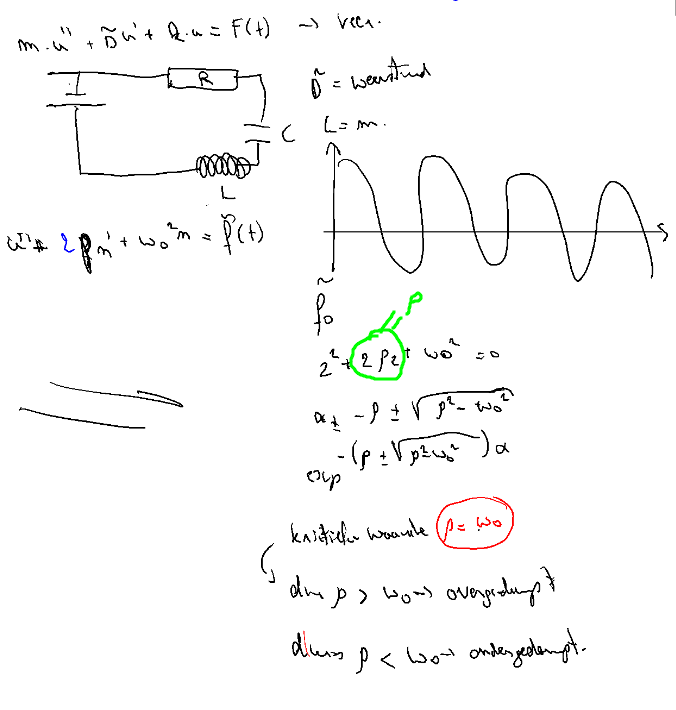 m.u'' + D̃u' + k.u = F(t) → veer.
R
D̃ = weerstand
C
L = m.
L
u'' + 2ρu' + ω₀²u = f̃(t)
f̃₀
ρ
2² + 2ρ2 + ω₀² = 0
α± - ρ ± √ρ² - ω₀²
exp -(ρ ± √ρ²-ω₀²)α
kritische waarde ρ = ω₀
dus ρ > ω₀ → overgedempt
dus ρ < ω₀ → ondergedempt.